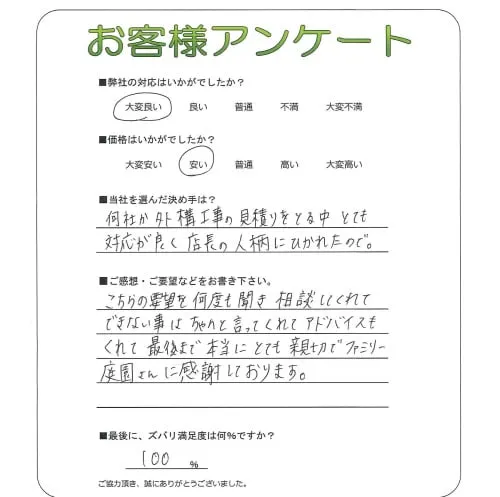 お客様アンケート
■弊社の対応はいかがでしたか？
大変良い 良い 普通 不満 大変不満
■価格はいかがでしたか？
大変安い 安い 普通 高い 大変高い
■当社を選んだ決め手は？
何社か外構工事の見積りをとる中 とても
対応が良く店長の人柄にひかれたので。
■ご感想・ご要望などをお書き下さい。
こちらの要望を何度も聞き 相談してくれて
できない事は ちゃんと言ってくれて アドバイスも
くれて 最後まで 本当に とても 親切で ファミリー
庭園さんに感謝しております。
■最後に、ズバリ満足度は何％ですか？
100 ％
ご協力頂き、誠にありがとうございました。